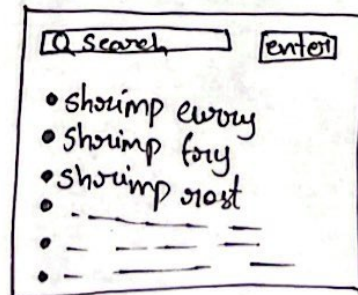 Search enter
shrimp curry
shrimp fry
shrimp rost